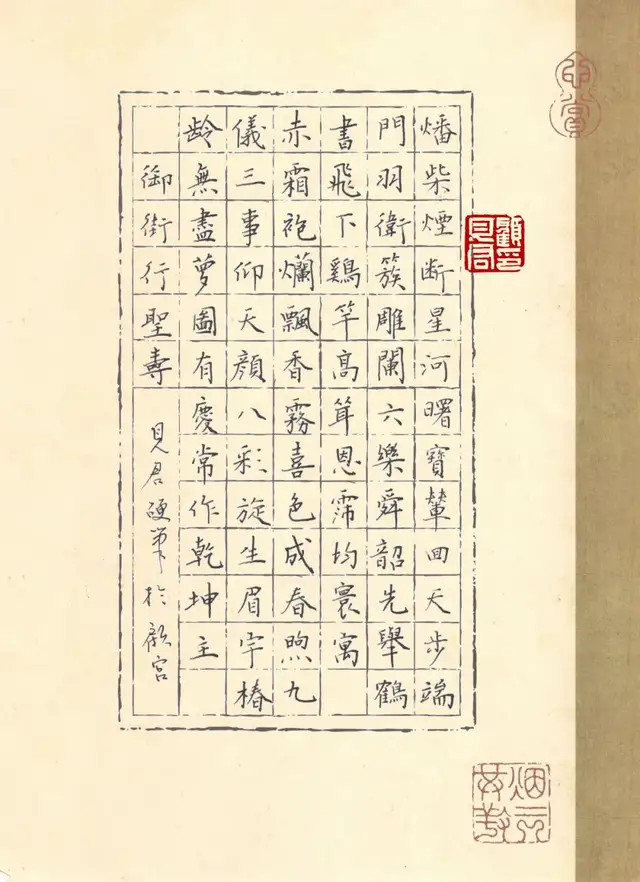 燔柴煙断星河曙寶輦囬天步端
門羽衛簇雕闌六樂舜韶先舉鶴
書飛下鷄竿高聳恩霈均寰寓
赤霜袍爛飄香霧喜色成春煦九
儀三事仰天顔八彩旋生眉宇椿
龄無盡萝圖有慶常作乾坤主
御街行聖壽
見君硬筆於顧宫